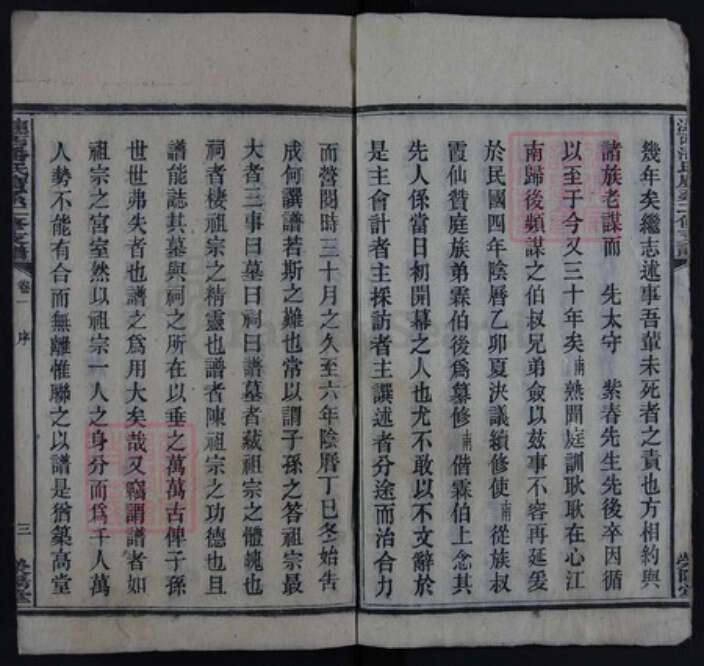 幾年矣繼志述事吾輩未死者之責也方相約與
諸族老謀而 先太守 紫春先生先後卒因循
以至于今又三十年矣南熟聞庭訓耿耿在心江
南歸後頻謀之伯叔兄弟僉以茲事不容再延爰
於民國四年陰曆乙卯夏決議續修使南從族叔
霞仙贊庭族弟霖伯後爲纂修南偕霖伯上念其
先人係當日初開幕之人也尤不敢以不文辭於
是主會計者主採訪者主譔述者分途而治合力
而營閱時三十月之久至六年陰曆丁巳冬始告
成何譔譜若斯之難也常以謂子孫之答祖宗最
大者三事曰墓曰祠曰譜墓者藏祖宗之體魄也
祠者棲祖宗之精靈也譜者陳祖宗之功德也且
譜能誌其墓與祠之所在以垂之萬萬古俾子孫
世世弗失者也譜之爲用大矣哉又竊謂譜者如
祖宗之宮室然以祖宗一人之身分而爲千人萬
人勢不能有合而無離惟聯之以譜是猶築高堂
卷一 序
三